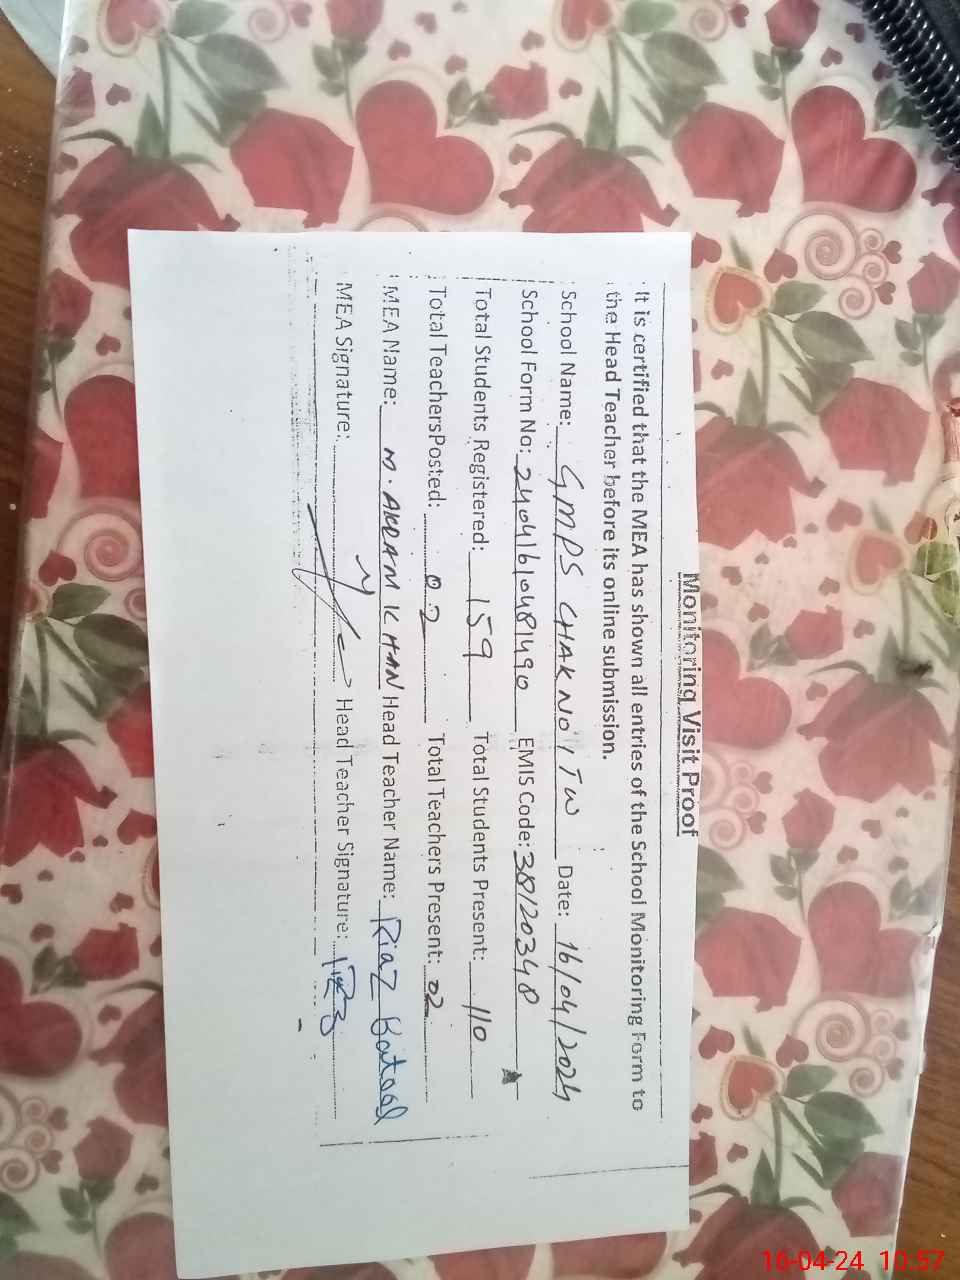 Monitoring Visit Proof
It is certified that the MEA has shown all entries of the School Monitoring Form to
the Head Teacher before its online submission.
School Name: GMPS CHAK NO Y TW Date: 16/04/2024
School Form No: 24041610481490 EMIS Code: 38120348
Total Students Registered: 159 Total Students Present: 110
Total TeachersPosted: 02 Total Teachers Present: 02
MEA Name: M. AKRAM KHAN Head Teacher Name: Riaz Batool
MEA Signature: Head Teacher Signature:
16-04-24 10:57